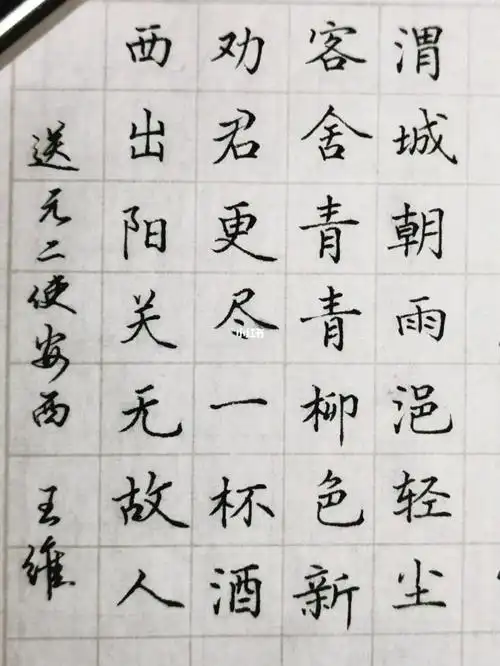 渭城朝雨浥轻尘
客舍青青柳色新
劝君更尽一杯酒
西出阳关无故人
送元二使安西 王维
小红书